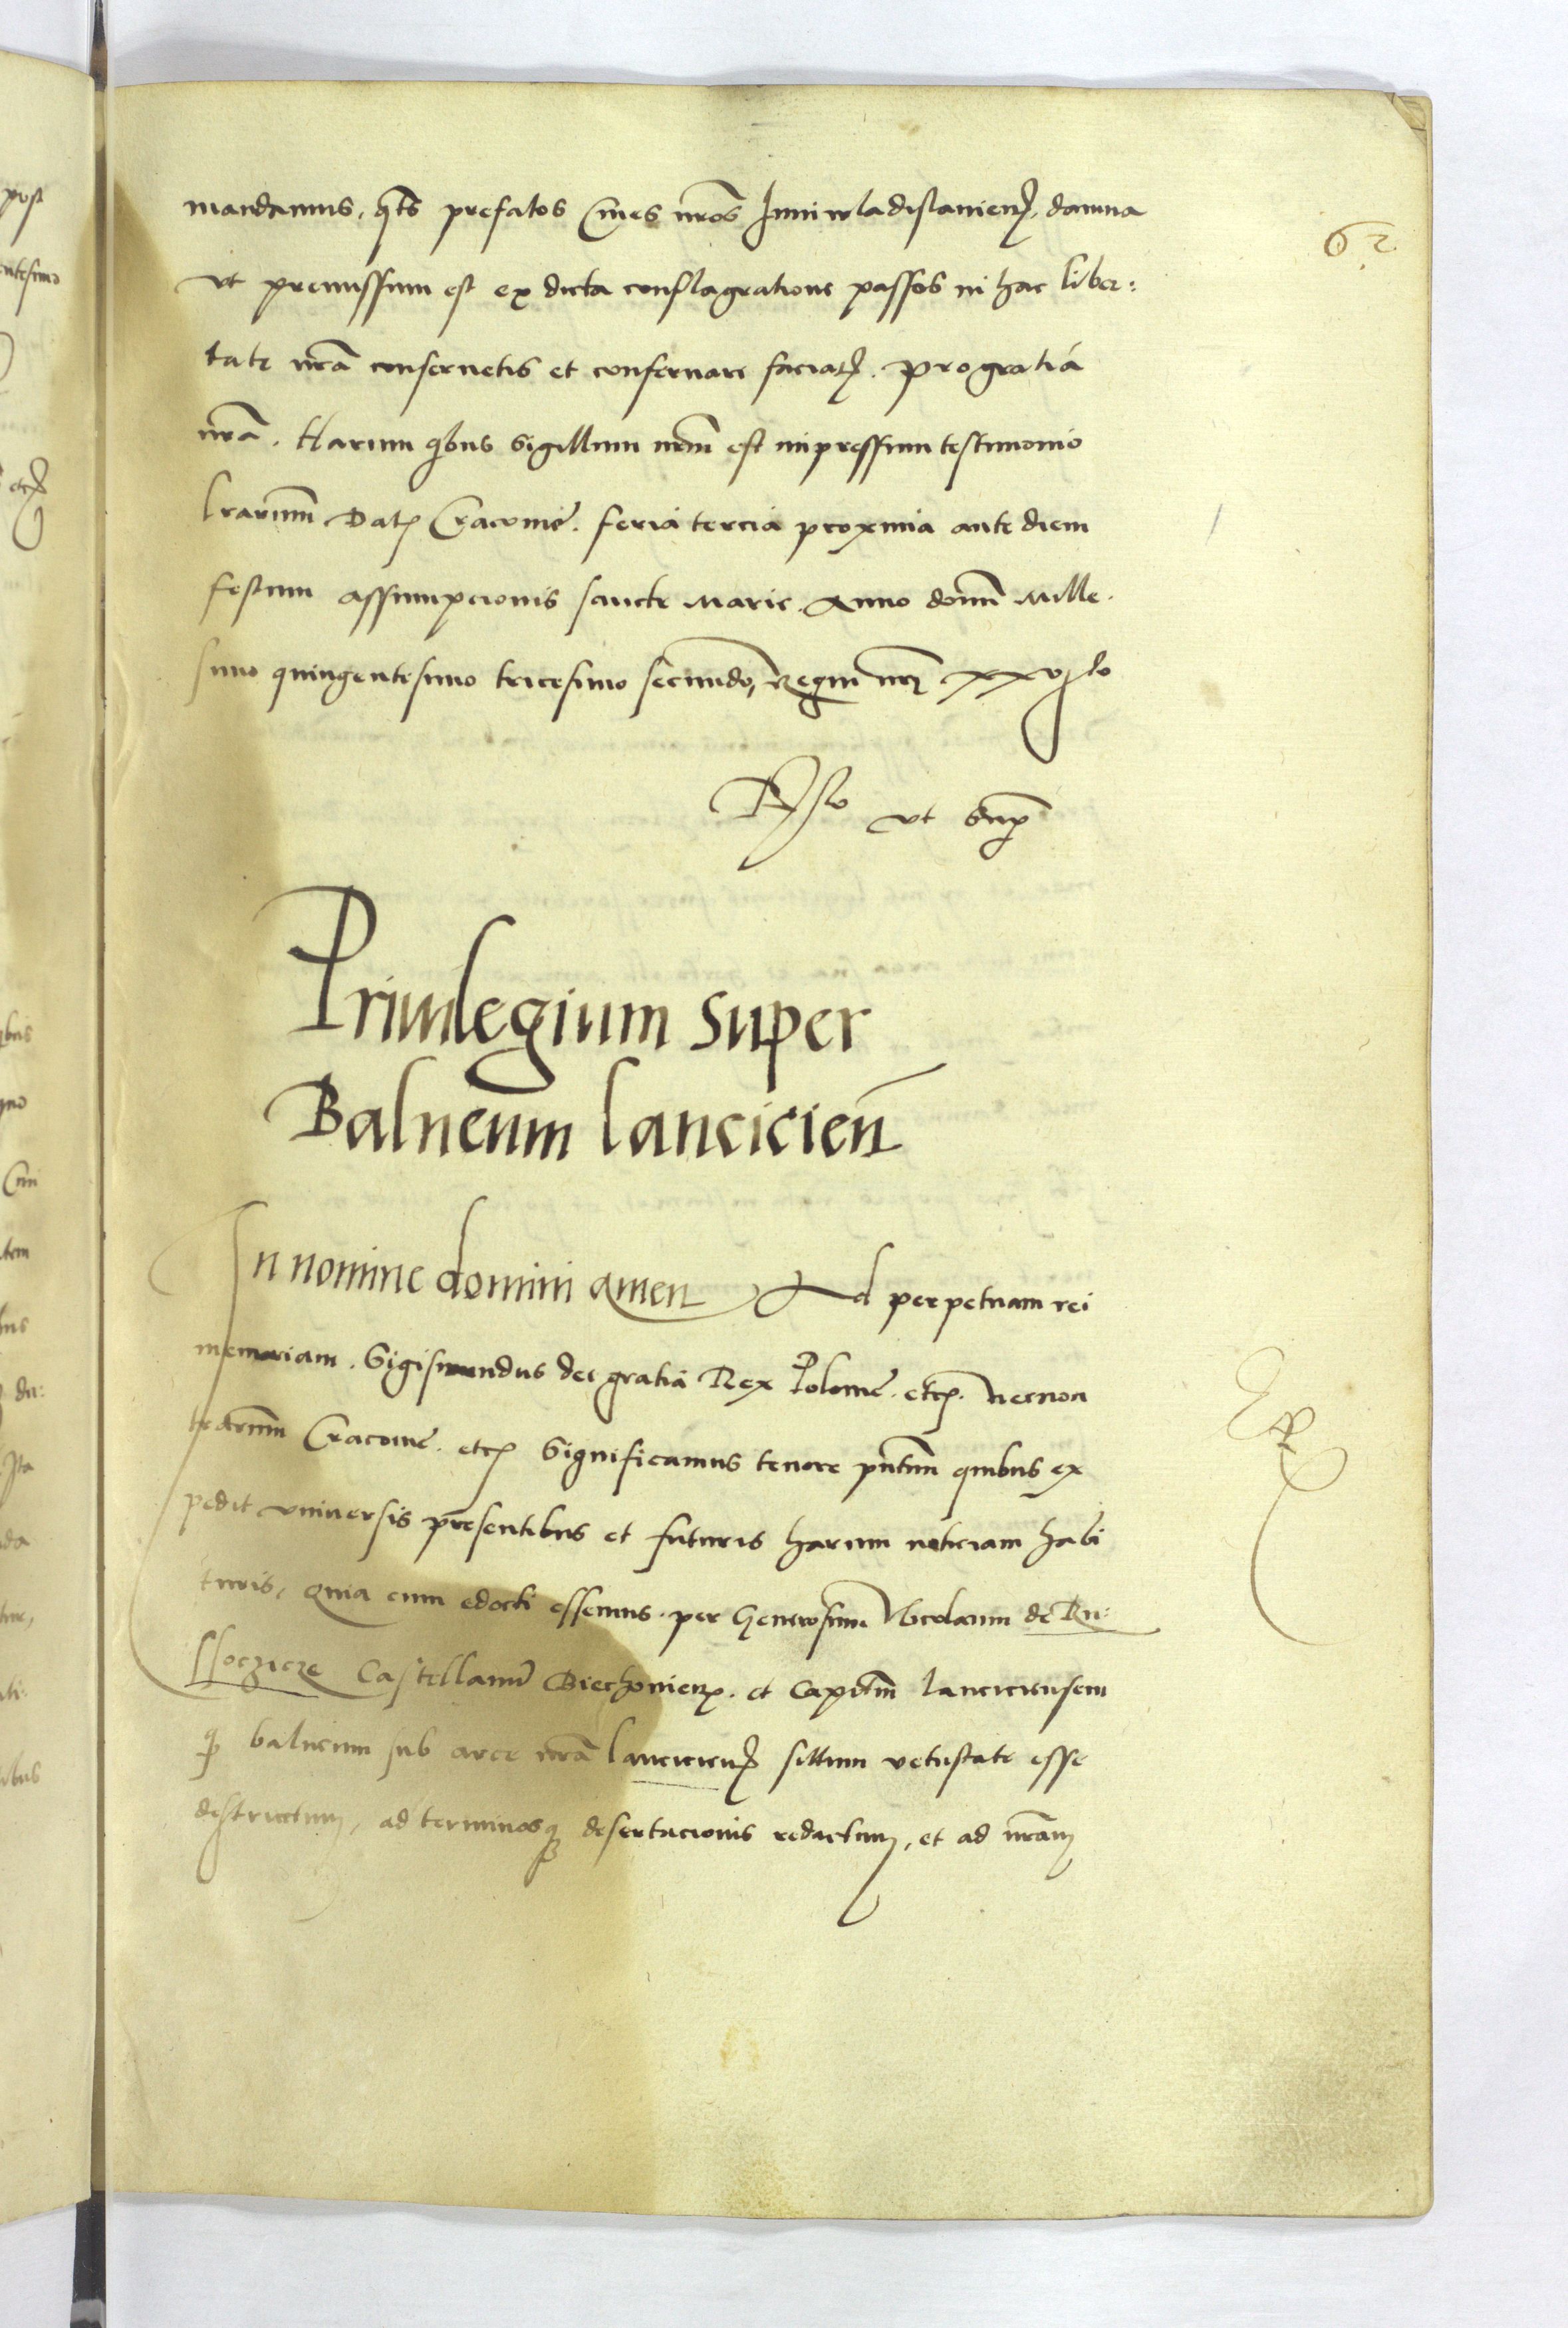 62
mandamus, qts prefatos Cives nros Juniwladislauienses, damna
vt premissum est ex dicta conflagratione passos in hac liber:
tate nra conseruetis et conseruari faciatis. pro gratia
nra. Harum qbus Sigillum nrm est impressum testimonio
lrarum Datum Cracouie. feria tercia proxima ante diem
festum assumpcionis sancte Marie. Anno domini Mille.
simo quingentesimo tricesimo secundo, Regni nri xxvjto
Rlo vt supra
Priuilegium super
Balneum lancicien
In nomine domini amen Ad perpetuam rei
memoriam. Sigismundus dei gratia Rex Polonie. etc. necnon
terrarum Cracouie. etc Significamus tenore pntium quibus ex
pedit vniuersis presentibus et futuris harum noticiam habi
turis, quia cum edocti essemus. per Generosum Nicolaum de Ru:
ssoczicze Castellanum Biechouiens. et Capitm lanciciensem
qz balneum sub arce nra lanciciens sittum vetustate esse
destructum, ad terminosqz desertacionis redactum, et ad nram